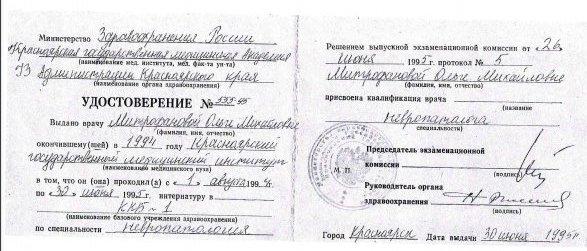 Министерство Здравоохранения России
Красноярская государственная медицинская Академия
(наименование мед. института, мед. фак-та ун-та)
УЗ Администрации Красноярского края
(наименование органа здравоохранения)
УДОСТОВЕРЕНИЕ №
Выдано врачу Митрофановой Ольге Михайловне
(фамилия, имя, отчество)
окончившему(шей) в 1994 году Красноярский
государственный медицинский институт
(наименование медицинского вуза)
в том, что он (она) проходил(а) с « 1 » августа 1994г.
по « 30 » июня 1995г. интернатуру в
ККБ-1
(наименование базового учреждения здравоохранения)
по специальности невропатология
Решением выпускной экзаменационной комиссии от « 26
июня 1995г. протокол № 5
Митрофановой Ольге Михайловне
(фамилия, имя, отчество)
присвоена квалификация врача
(название
невропатолога
специальности)
Председатель экзаменационной
комиссии
(подпись)
М. П.
Руководитель органа
здравоохранения
(подпись)
Город Красноярск Дата выдачи 30 июня 1995г.